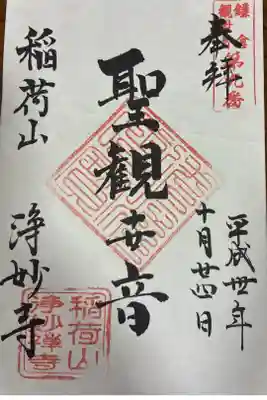 鎌倉
観世音第九番
奉拝
平成丗年
十月廿四日
聖観世音
稲荷山
浄妙寺
稲荷山
浄妙禅寺